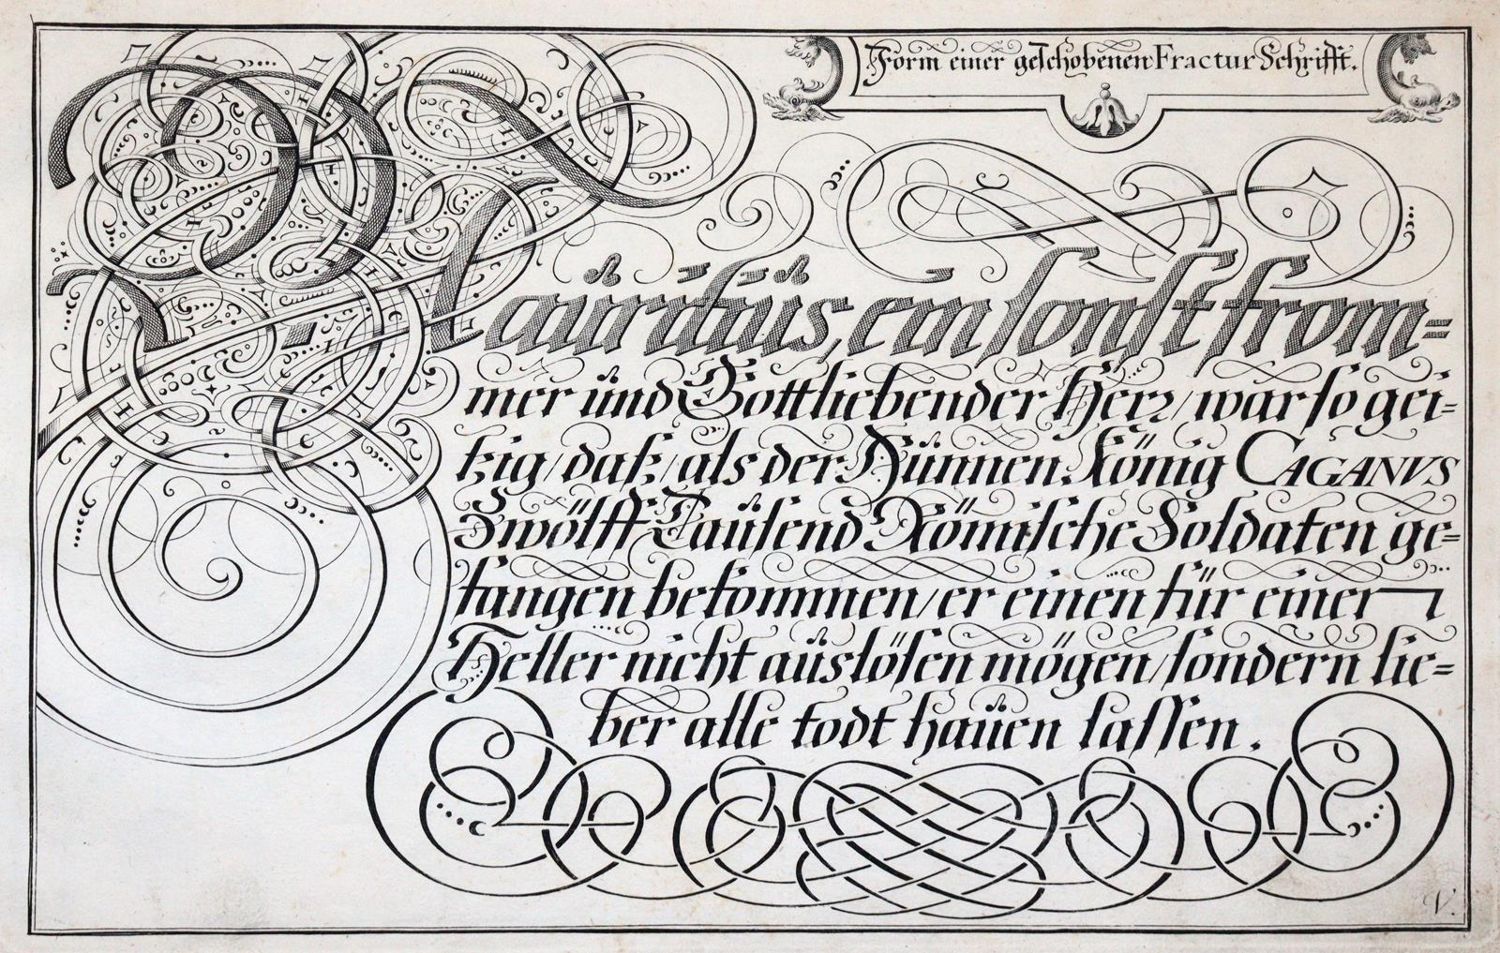 Form einer geschobenen Fractur Schrifft.
Mauritius, ein sonst from=
mer und Gottliebender Herr / war so gei=
tzig / daß / als der Hunnen König CAGANVS
Zwölff Tausend Römische Soldaten ge=
fangen bekommen / er einen für einen
Heller nicht auslösen mögen / sondern lie=
ber alle todt hauen lassen.
V.